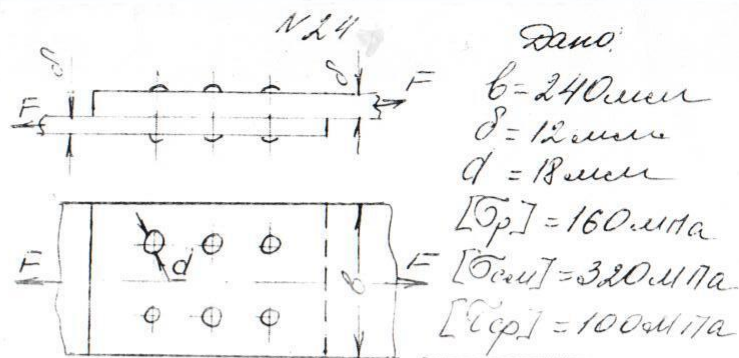 N24
Дано:
δ
F
δ
F
b=240мм
δ=12мм
d=18мм
[σр]=160мПа
[σсм]=320мПа
[τср]=100мПа
F
d
b
F